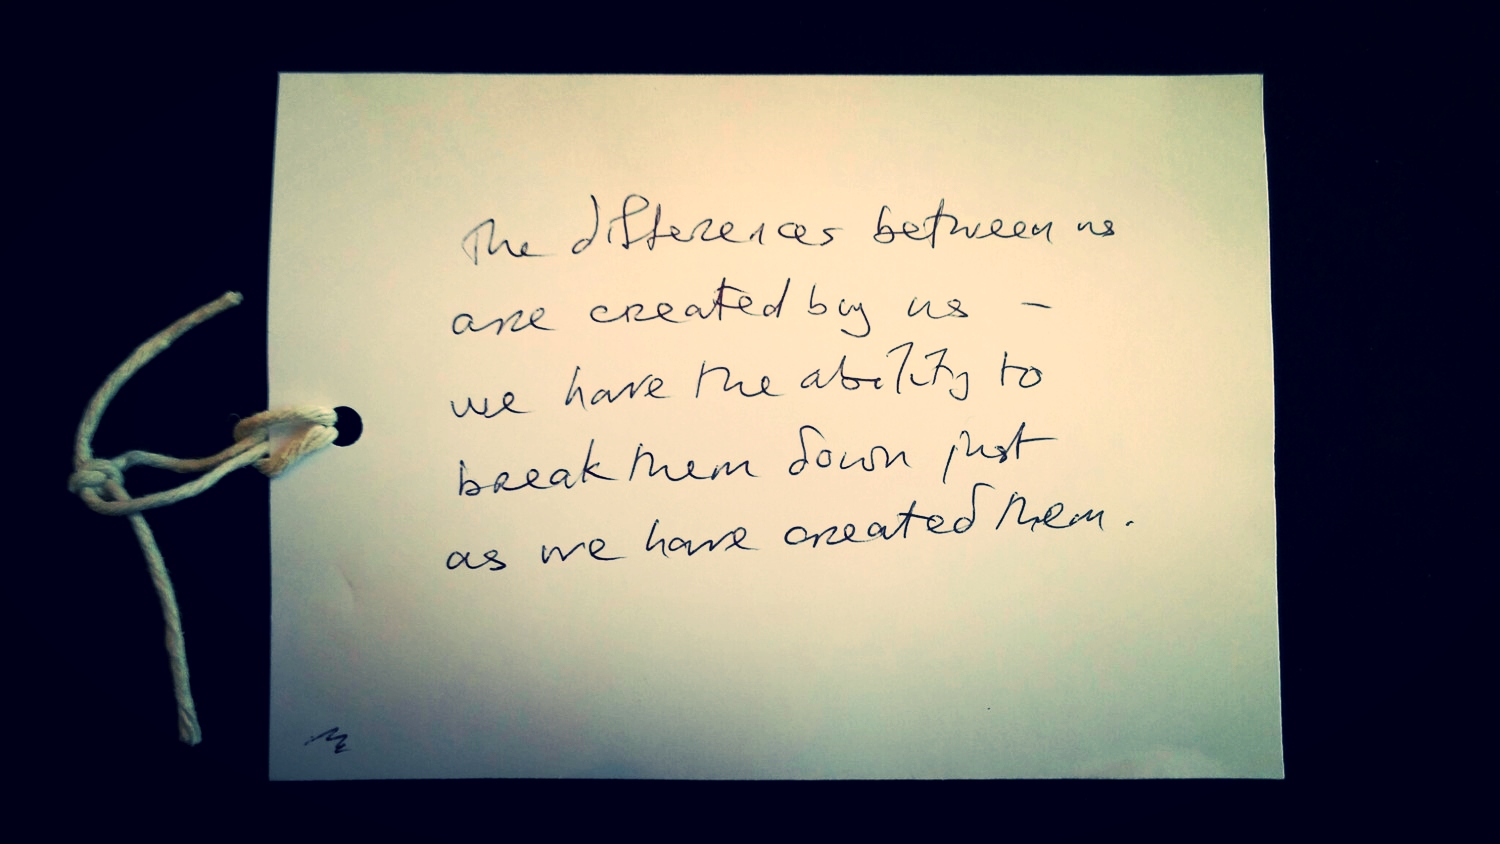 The differences between us
are created by us -
we have the ability to
break them down just
as we have created them.